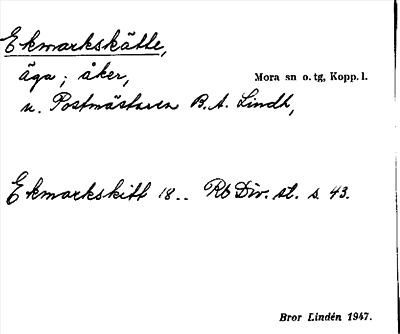 Ekmarkskätte,
äga; åker,
Mora sn o. tg, Kopp. l.
u. Postmästaren B. A. Lindh,
Ekmarkskitt 18.. Rb Div. st. s. 43.
Bror Lindén 1947.